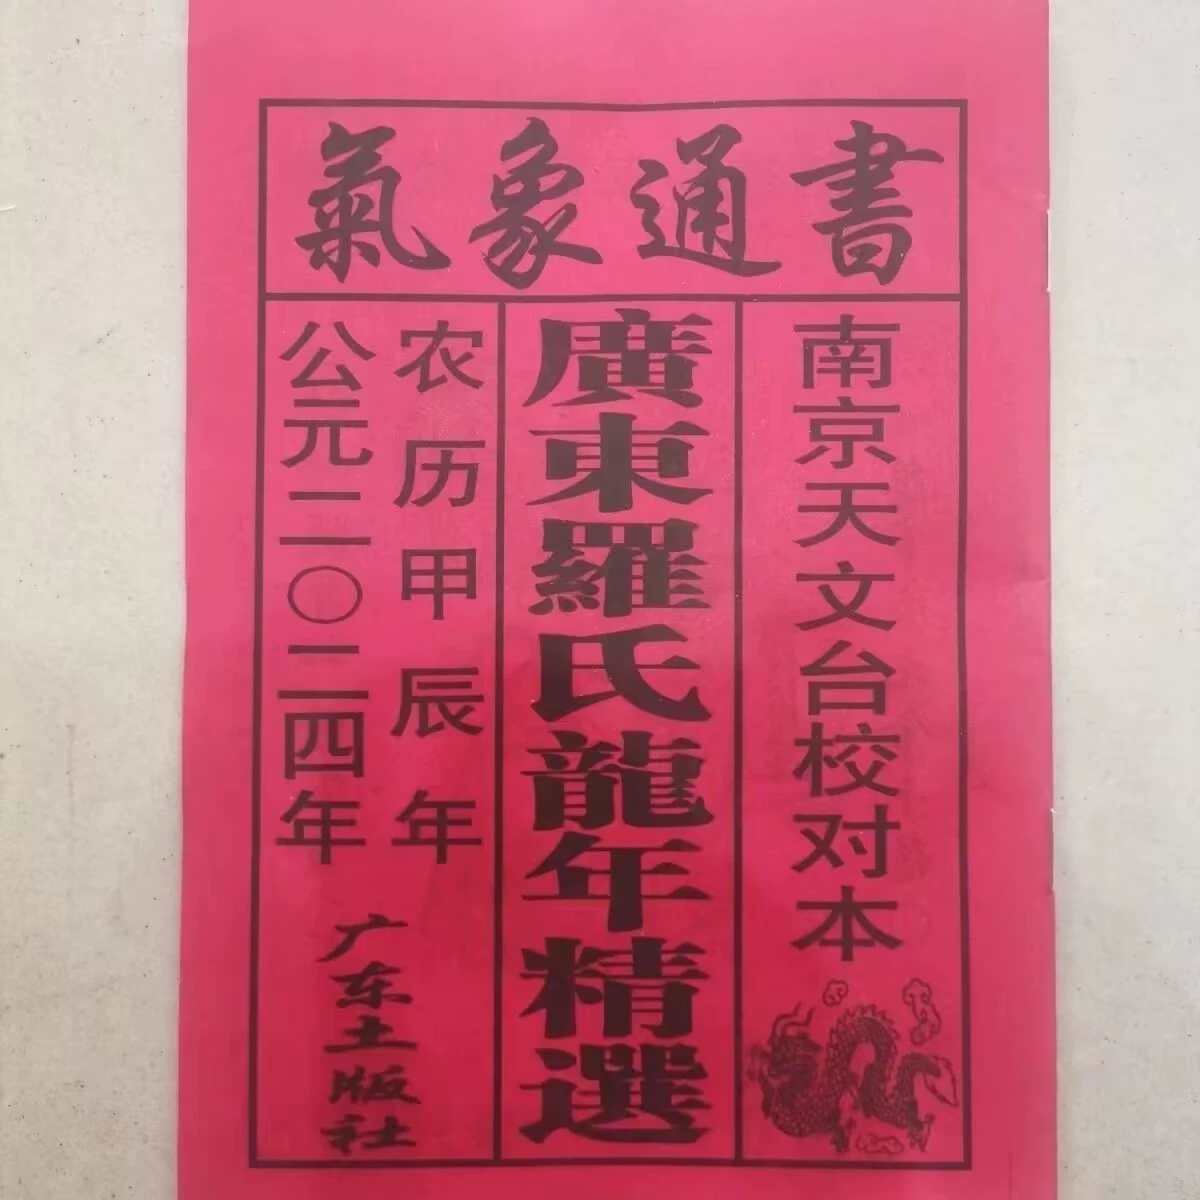 氣象通書
南京天文台校对本
廣東羅氏龍年精選
农历甲辰年
公元二〇二四年
广东土版社